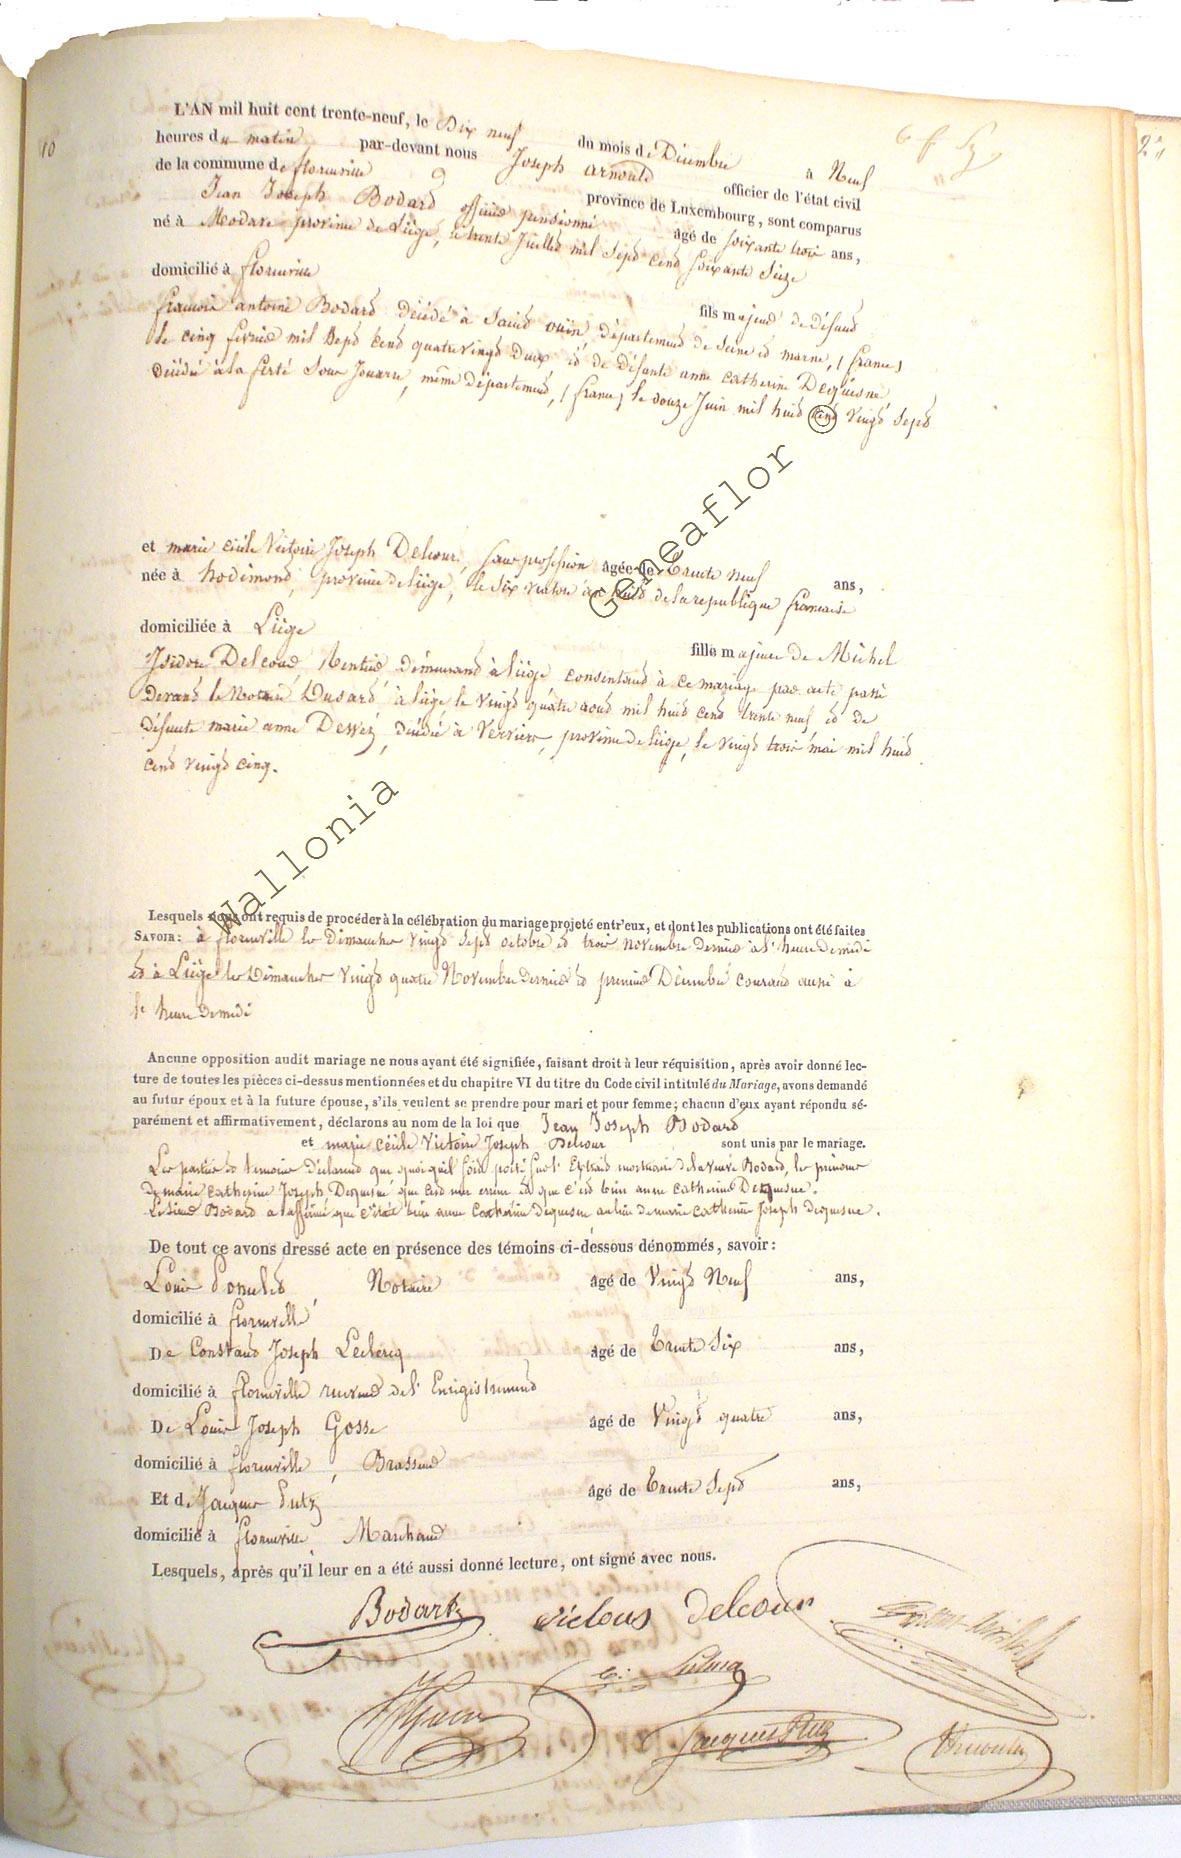 10
6 f
2
L'AN mil huit cent trente-neuf, le Dix neuf du mois de Décembre à Neuf
heures du matin par-devant nous Joseph arnould officier de l'état civil
de la commune de florenville province de Luxembourg, sont comparus
Jean Joseph Bodard officier pensionné âgé de soixante trois ans,
né à Modave province de Liège, le trente Juillet mil sept cent soixante seize
domicilié à florenville fils majeur de défunt
francois antoine Bodard décédé à Saint ouin, département de Seine et marne, (france)
le cinq fevrier mil sept cent quatrevingt deux et de défunte anne catherine Dequesne,
décédée à la ferté sous Jouarre, même département, (france) le douze Juin mil huit cent vingt sept
et marie cécile Victoire Joseph Delcour, sans profession âgée de trente neuf ans,
née à hodimont, province de liège, le six ventose an huit de la republique francaise
domiciliée à Liège fille majeure de Michel
Isidore Delcour, Rentier, demeurant à liège consentant à ce mariage par acte passé
devant le Notaire Dusart à liège le vingt quatre aout mil huit cent trente neuf et de
défunte marie anne Dewez, décédée à Verviers, province de liège, le vingt trois mai mil huit
cent vingt cinq.
Lesquels nous ont requis de procéder à la célébration du mariage projeté entr'eux, et dont les publications ont été faites
SAVOIR: à florenville les Dimanches vingt sept octobre et trois novembre dernier à l'heure de midi
et à Liège les Dimanches vingt quatre Novembre dernier et premier Décembre courant aussi à
l'heure de midi
Aucune opposition audit mariage ne nous ayant été signifiée, faisant droit à leur réquisition, après avoir donné lec-
ture de toutes les pièces ci-dessus mentionnées et du chapitre VI du titre du Code civil intitulé du Mariage, avons demandé
au futur époux et à la future épouse, s'ils veulent se prendre pour mari et pour femme; chacun d'eux ayant répondu sé-
parément et affirmativement, déclarons au nom de la loi que Jean Joseph Bodard
et marie cécile Victoire Joseph Delcour sont unis par le mariage.
Les parties et témoins déclarent que quoiqu'il soit porté sur l'Extrait mortuaire de la veuve Bodard, les prénoms
de marie catherine Joseph Dequesne que c'est une erreur et que c'est bien anne catherine Dequesne.
Le sieur Bodard a affirmé que c'était bien anne Catherine dequesne au lieu de marie catherine Joseph dequesne.
De tout ce avons dressé acte en présence des témoins ci-dessous dénommés, savoir:
Louis Notaire âgé de Vingt Neuf ans,
domicilié à florenville
De Constant Joseph Leclercq âgé de trente Six ans,
domicilié à florenville receveur de l'Enregistrement
De Louis Joseph Gosse âgé de Vingt quatre ans,
domicilié à florenville, Brasseur
Et de Jacques Putz âgé de trente Sept ans,
domicilié à florenville Marchand
Lesquels, après qu'il leur en a été aussi donné lecture, ont signé avec nous.
Bodart victoire Delcour
Jacques Putz
Wallonia Geneaflor ©